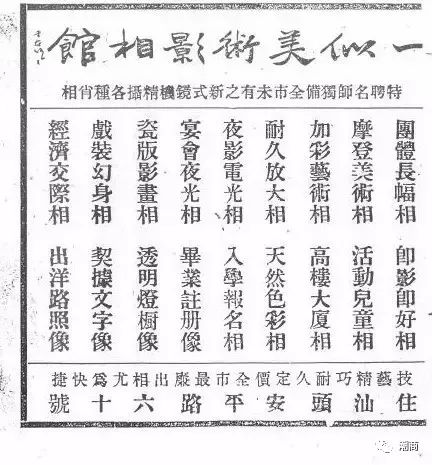 一似美術影相館
特聘名師獨備全市未有之新式鏡機精攝各種肖相
團體長幅相 即影即好相
摩登美術相 活動兒童相
加彩藝術相 高樓大厦相
耐久放大相 天然色彩相
夜影電光相 入學報名相
宴會夜光相 畢業註册像
瓷版影畫相 透明燈櫥像
戲裝幻身相 契據文字像
經濟交際相 出洋路照像
技藝精巧耐久定價全市最廉出相尤爲快捷
住汕頭安平路六十號
潮商